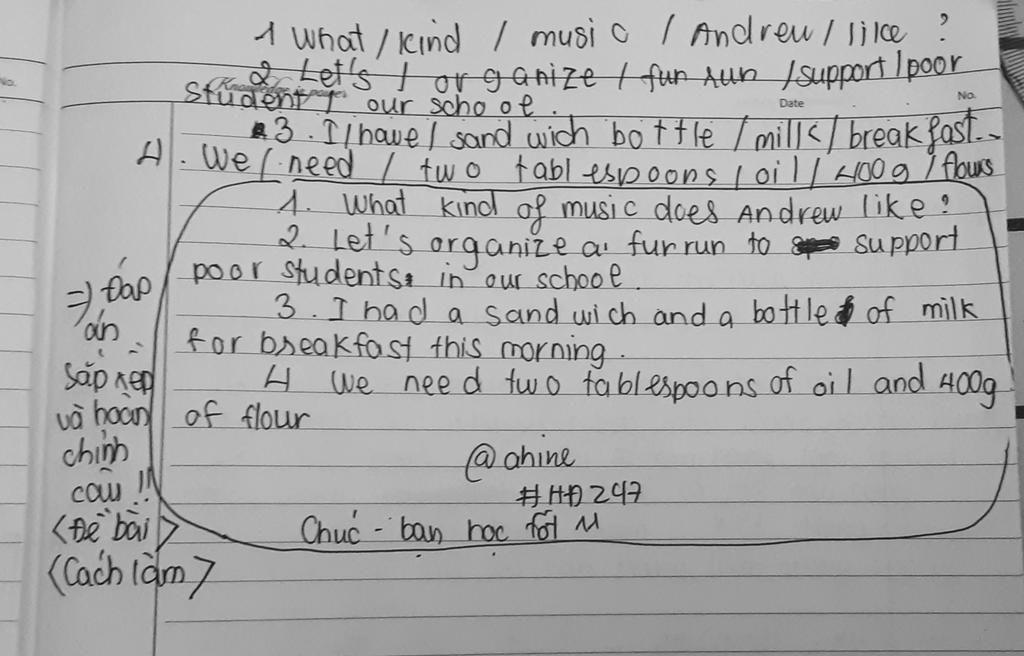 1 What / kind / music / Andrew / like ?
2 Let's / organize / fun run / support / poor
student / our school.
3. I / have / sand wich bottle / milk / breakfast.
4. We / need / two tablespoons / oil / 400g / flours
No.
Date
No.
1. What kind of music does Andrew like?
2. Let's organize a fun run to support
poor students in our school.
3. I had a sandwich and a bottle of milk
for breakfast this morning.
4 We need two tablespoons of oil and 400g
of flour
=) Đáp
án
sắp xếp
và hoàn
chỉnh
câu !!
<Đề bài>
<Cách làm>
@ahine
#HĐ247
Chúc - bạn học tốt